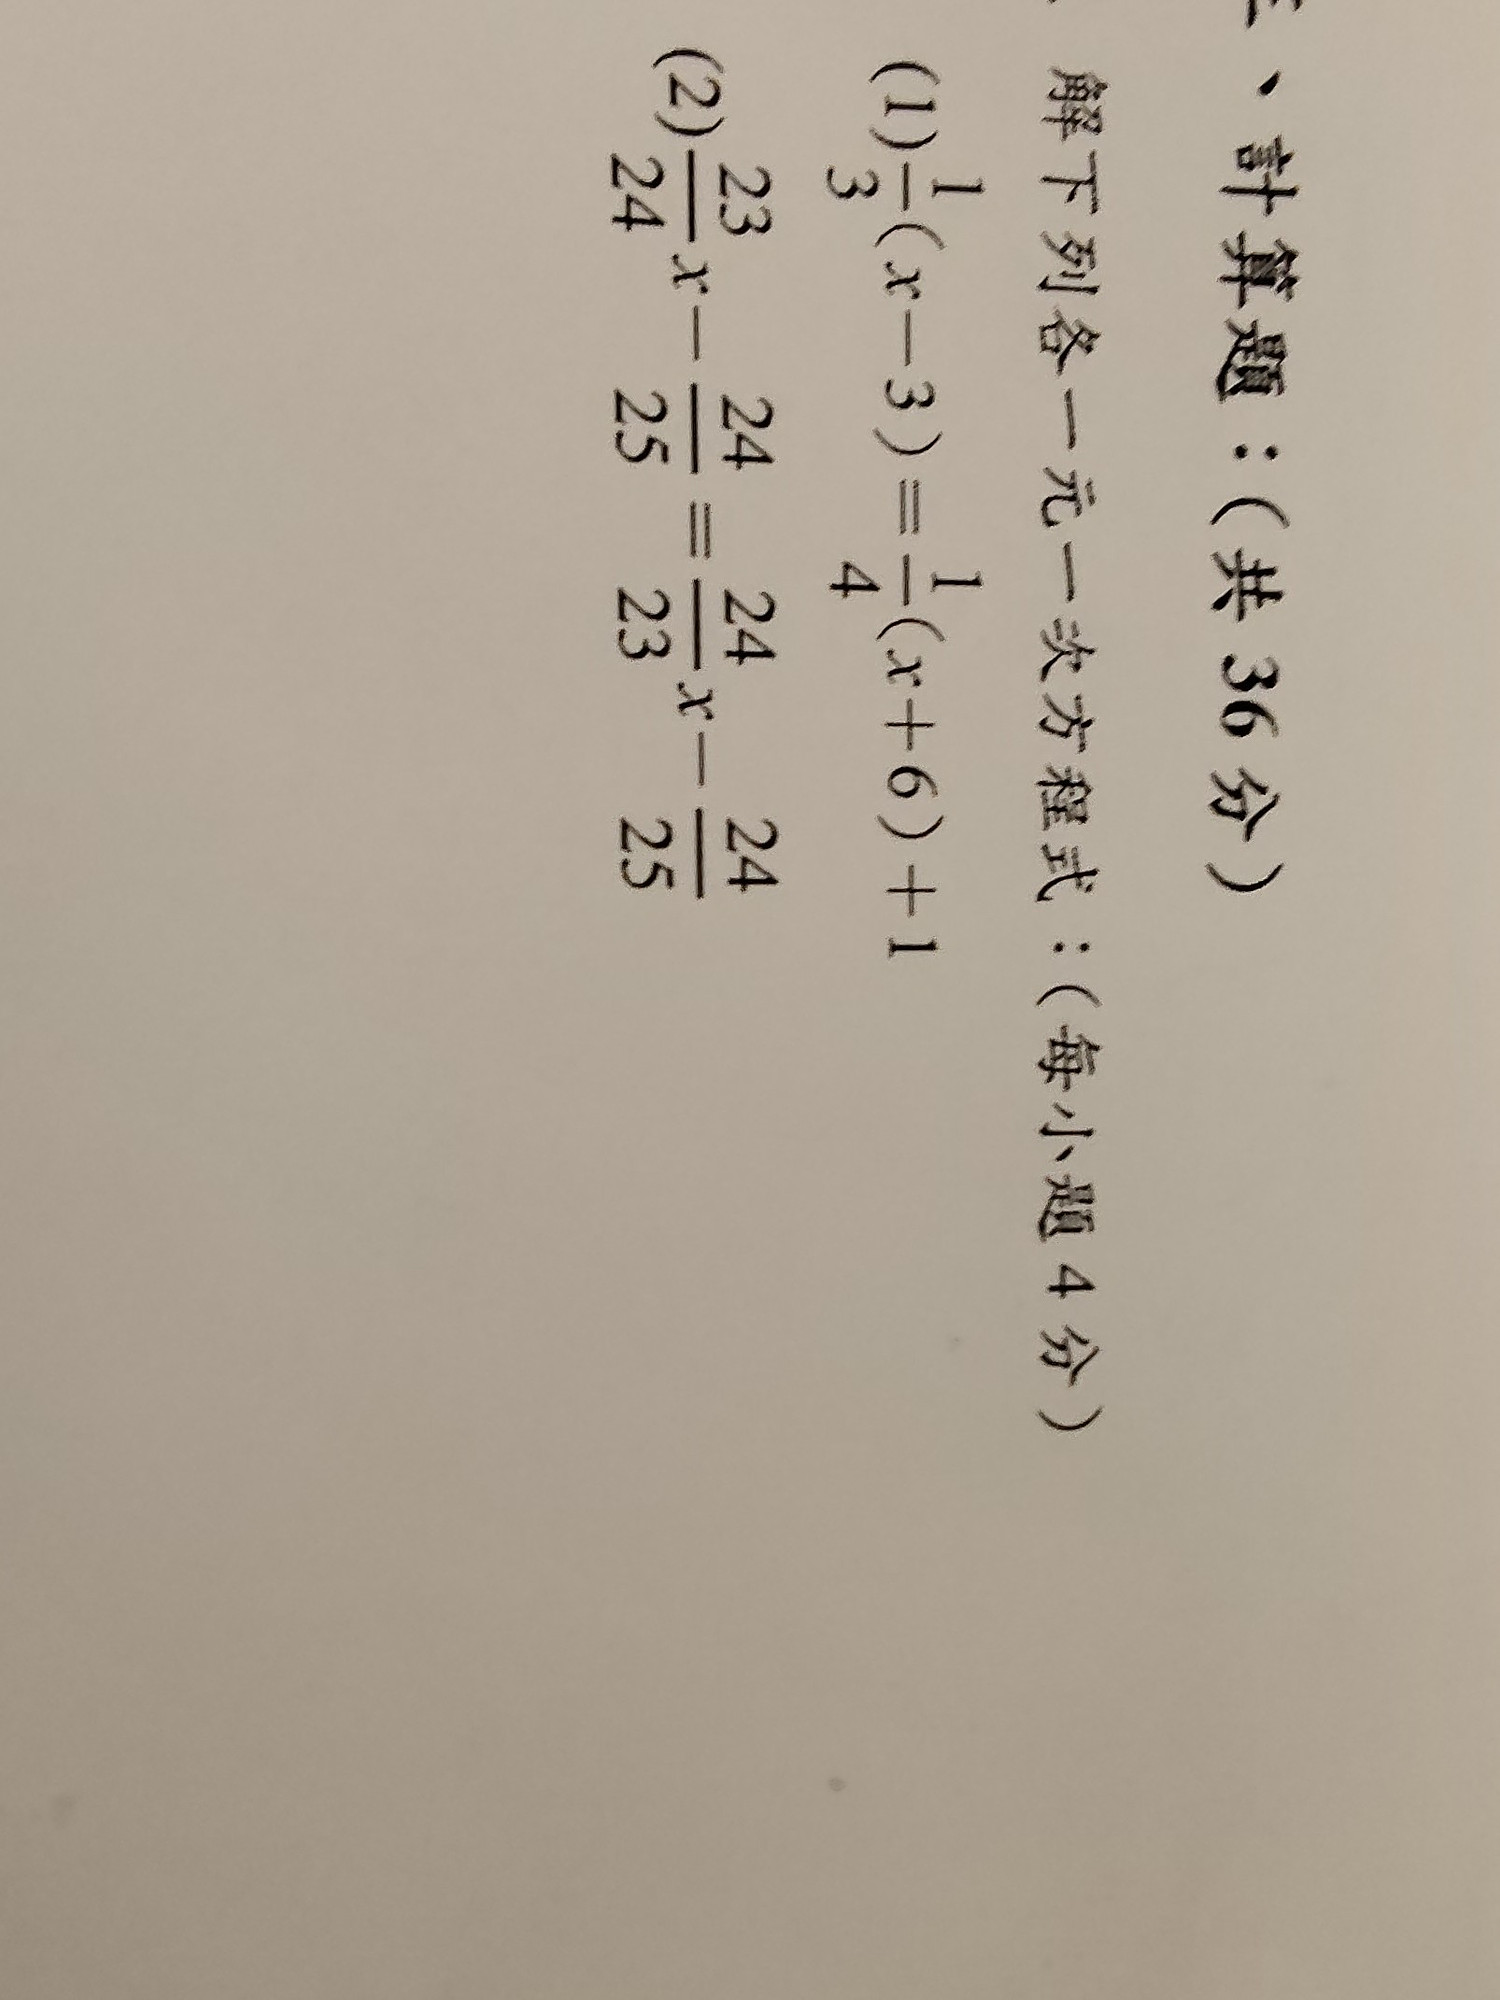 、計算題：(共 36 分)
解下列各一元一次方程式：(每小題 4 分)
(1) 1/3 (x－3)＝1/4 (x＋6)＋1
(2) 23/24 x－24/25＝24/23 x－24/25